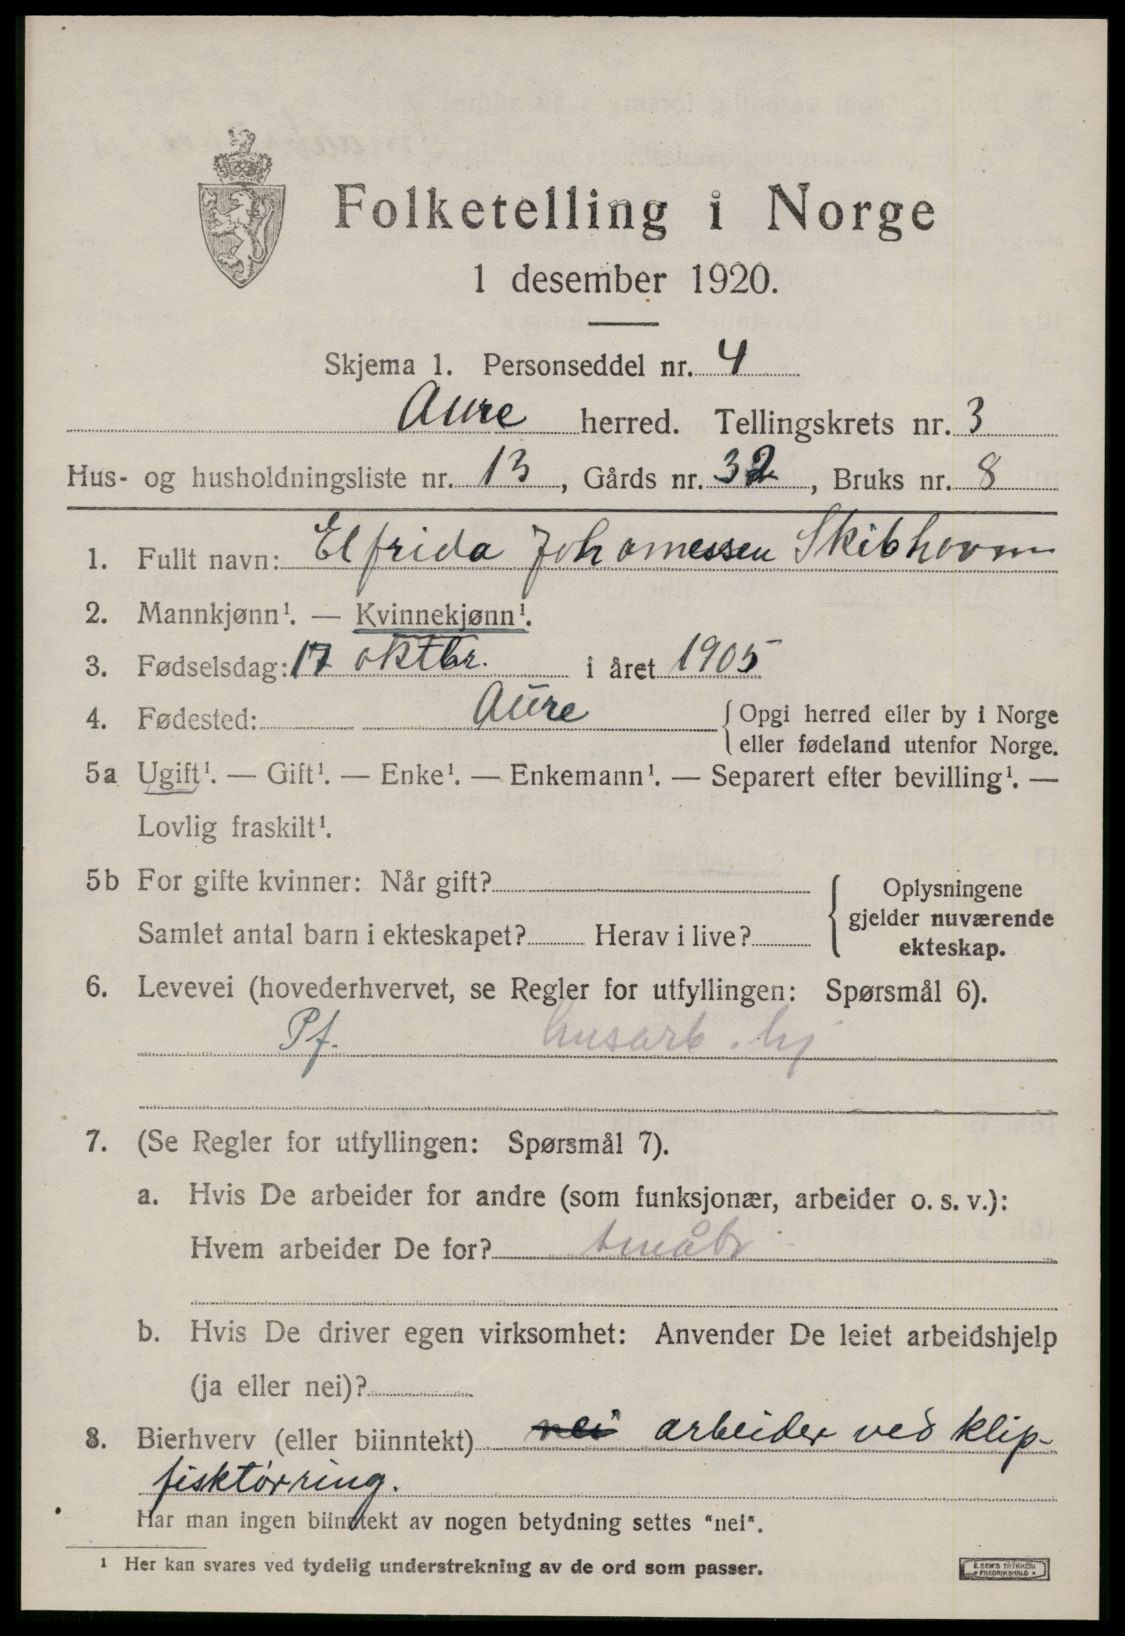 Folketelling i Norge
1 desember 1920.
Skjema 1. Personseddel nr. 4
Aure herred. Tellingskrets nr. 3
Hus- og husholdningsliste nr. 13, Gårds nr. 32, Bruks nr. 8
1. Fullt navn: Elfrida Johannessen Skibhavn
2. Mannkjønn¹. — Kvinnekjønn¹.
3. Fødselsdag: 17 oktbr. i året 1905
4. Fødested: Aure { Opgi herred eller by i Norge
eller fødeland utenfor Norge.
5a Ugift¹. — Gift¹. — Enke¹. — Enkemann¹. — Separert efter bevilling¹. —
Lovlig fraskilt¹.
5b For gifte kvinner: Når gift?
Samlet antal barn i ekteskapet? Herav i live?
Oplysningene
gjelder nuværende
ekteskap.
6. Levevei (hovederhvervet, se Regler for utfyllingen: Spørsmål 6).
Pf. husarb. hj
7. (Se Regler for utfyllingen: Spørsmål 7).
a. Hvis De arbeider for andre (som funksjonær, arbeider o. s. v.):
Hvem arbeider De for? småbr
b. Hvis De driver egen virksomhet: Anvender De leiet arbeidshjelp
(ja eller nei)?
8. Bierhverv (eller biinntekt) nei arbeider ved klip-
fisktørring.
Har man ingen biinntekt av nogen betydning settes "nei".
¹ Her kan svares ved tydelig understrekning av de ord som passer.
E. SEM'S TRYKKERI
FREDRIKSHALD